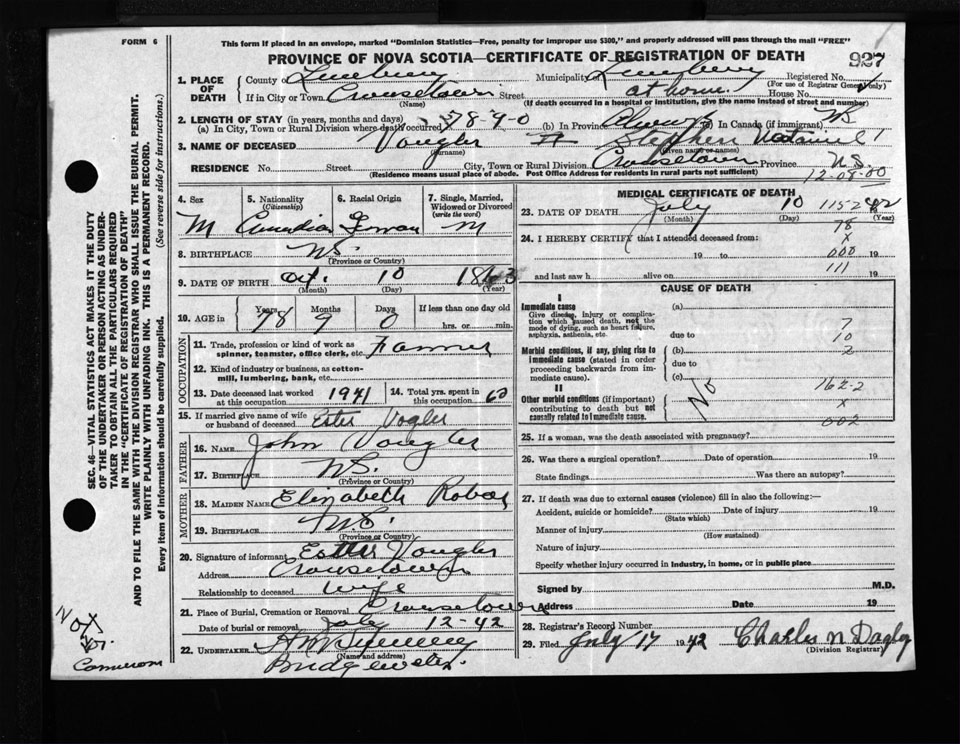 FORM 6
This form if placed in an envelope, marked "Dominion Statistics—Free, penalty for improper use $300," and properly addressed will pass through the mail "FREE"
PROVINCE OF NOVA SCOTIA—CERTIFICATE OF REGISTRATION OF DEATH
927
1. PLACE OF DEATH
County of Lunenburg Municipality Lunenburg Registered No.
(For use of Registrar General only)
If in City or Town Crousetown Street at home House No.
(Name) (If death occurred in a hospital or institution, give the name instead of street and number)
2. LENGTH OF STAY (in years, months and days)
(a) In City, Town or Rural Division where death occurred 78-9-0 (b) In Province Always (c) In Canada (if immigrant)
3. NAME OF DECEASED Vaugler Stephen Nataniel
(Surname) (Given name or names)
RESIDENCE No. Street City, Town or Rural Division Crousetown Province N.S.
(Residence means usual place of abode. Post Office Address for residents in rural parts not sufficient)
12-09-00
4. Sex
M
5. Nationality
(Citizenship)
Canadian
6. Racial Origin
German
7. Single, Married, Widowed or Divorced
(write the word)
M
8. BIRTHPLACE N.S.
(Province or Country)
9. DATE OF BIRTH Oct. 10 1863
(Month) (Day) (Year)
10. AGE in Years Months Days If less than one day old
78 9 0 hrs. or min.
OCCUPATION
11. Trade, profession or kind of work as spinner, teamster, office clerk, etc. Farmer
12. Kind of industry or business, as cotton-mill, lumbering, bank, etc.
13. Date deceased last worked at this occupation 1941
14. Total yrs. spent in this occupation 60
15. If married give name of wife or husband of deceased Ester Vogler
FATHER
16. NAME John Vaugler
17. BIRTHPLACE N.S.
(Province or Country)
MOTHER
18. MAIDEN NAME Elizabeth Robar
19. BIRTHPLACE N.S.
(Province or Country)
20. Signature of informant Esther Vaugler
Address Crousetown
Relationship to deceased wife
21. Place of Burial, Cremation or Removal Crousetown
Date of burial or removal July 12-42
22. UNDERTAKER
(Name and address)
Bridgewater
MEDICAL CERTIFICATE OF DEATH
23. DATE OF DEATH July 10 115-2 42
(Month) (Day) (Year)
78
24. I HEREBY CERTIFY that I attended deceased from:
x
19 to 000 19
111
and last saw h alive on 19
CAUSE OF DEATH
I
Immediate cause (a)
Give disease, injury or complication which caused death, not the mode of dying, such as heart failure, asphyxia, asthenia, etc.
due to
7
10
Morbid conditions, if any, giving rise to immediate cause (stated in order proceeding backwards from immediate cause).
(b) 2
due to
(c)
No
II
162-2
Other morbid conditions (if important) contributing to death but not causally related to immediate cause.
x
002
25. If a woman, was the death associated with pregnancy?
26. Was there a surgical operation? Date of operation 19
State findings Was there an autopsy?
27. If death was due to external causes (violence) fill in also the following:—
Accident, suicide or homicide? Date of injury 19
(State which)
Manner of injury
(How sustained)
Nature of injury
Specify whether injury occurred in industry, in home, or in public place
Signed by M.D.
Address Date 19
28. Registrar's Record Number
29. Filed July 17 1942 Charles N Dagley
(Division Registrar)
SEC. 46—VITAL STATISTICS ACT MAKES IT THE DUTY
OF THE UNDERTAKER OR PERSON ACTING AS UNDER-
TAKER TO OBTAIN ALL THE PARTICULARS REQUIRED
IN THE "CERTIFICATE OF REGISTRATION OF DEATH"
AND TO FILE THE SAME WITH THE DIVISION REGISTRAR WHO SHALL ISSUE THE BURIAL PERMIT.
WRITE PLAINLY WITH UNFADING INK. THIS IS A PERMANENT RECORD.
Every item of information should be carefully supplied. (See reverse side for instructions.)
Not
Dr.
Cameron